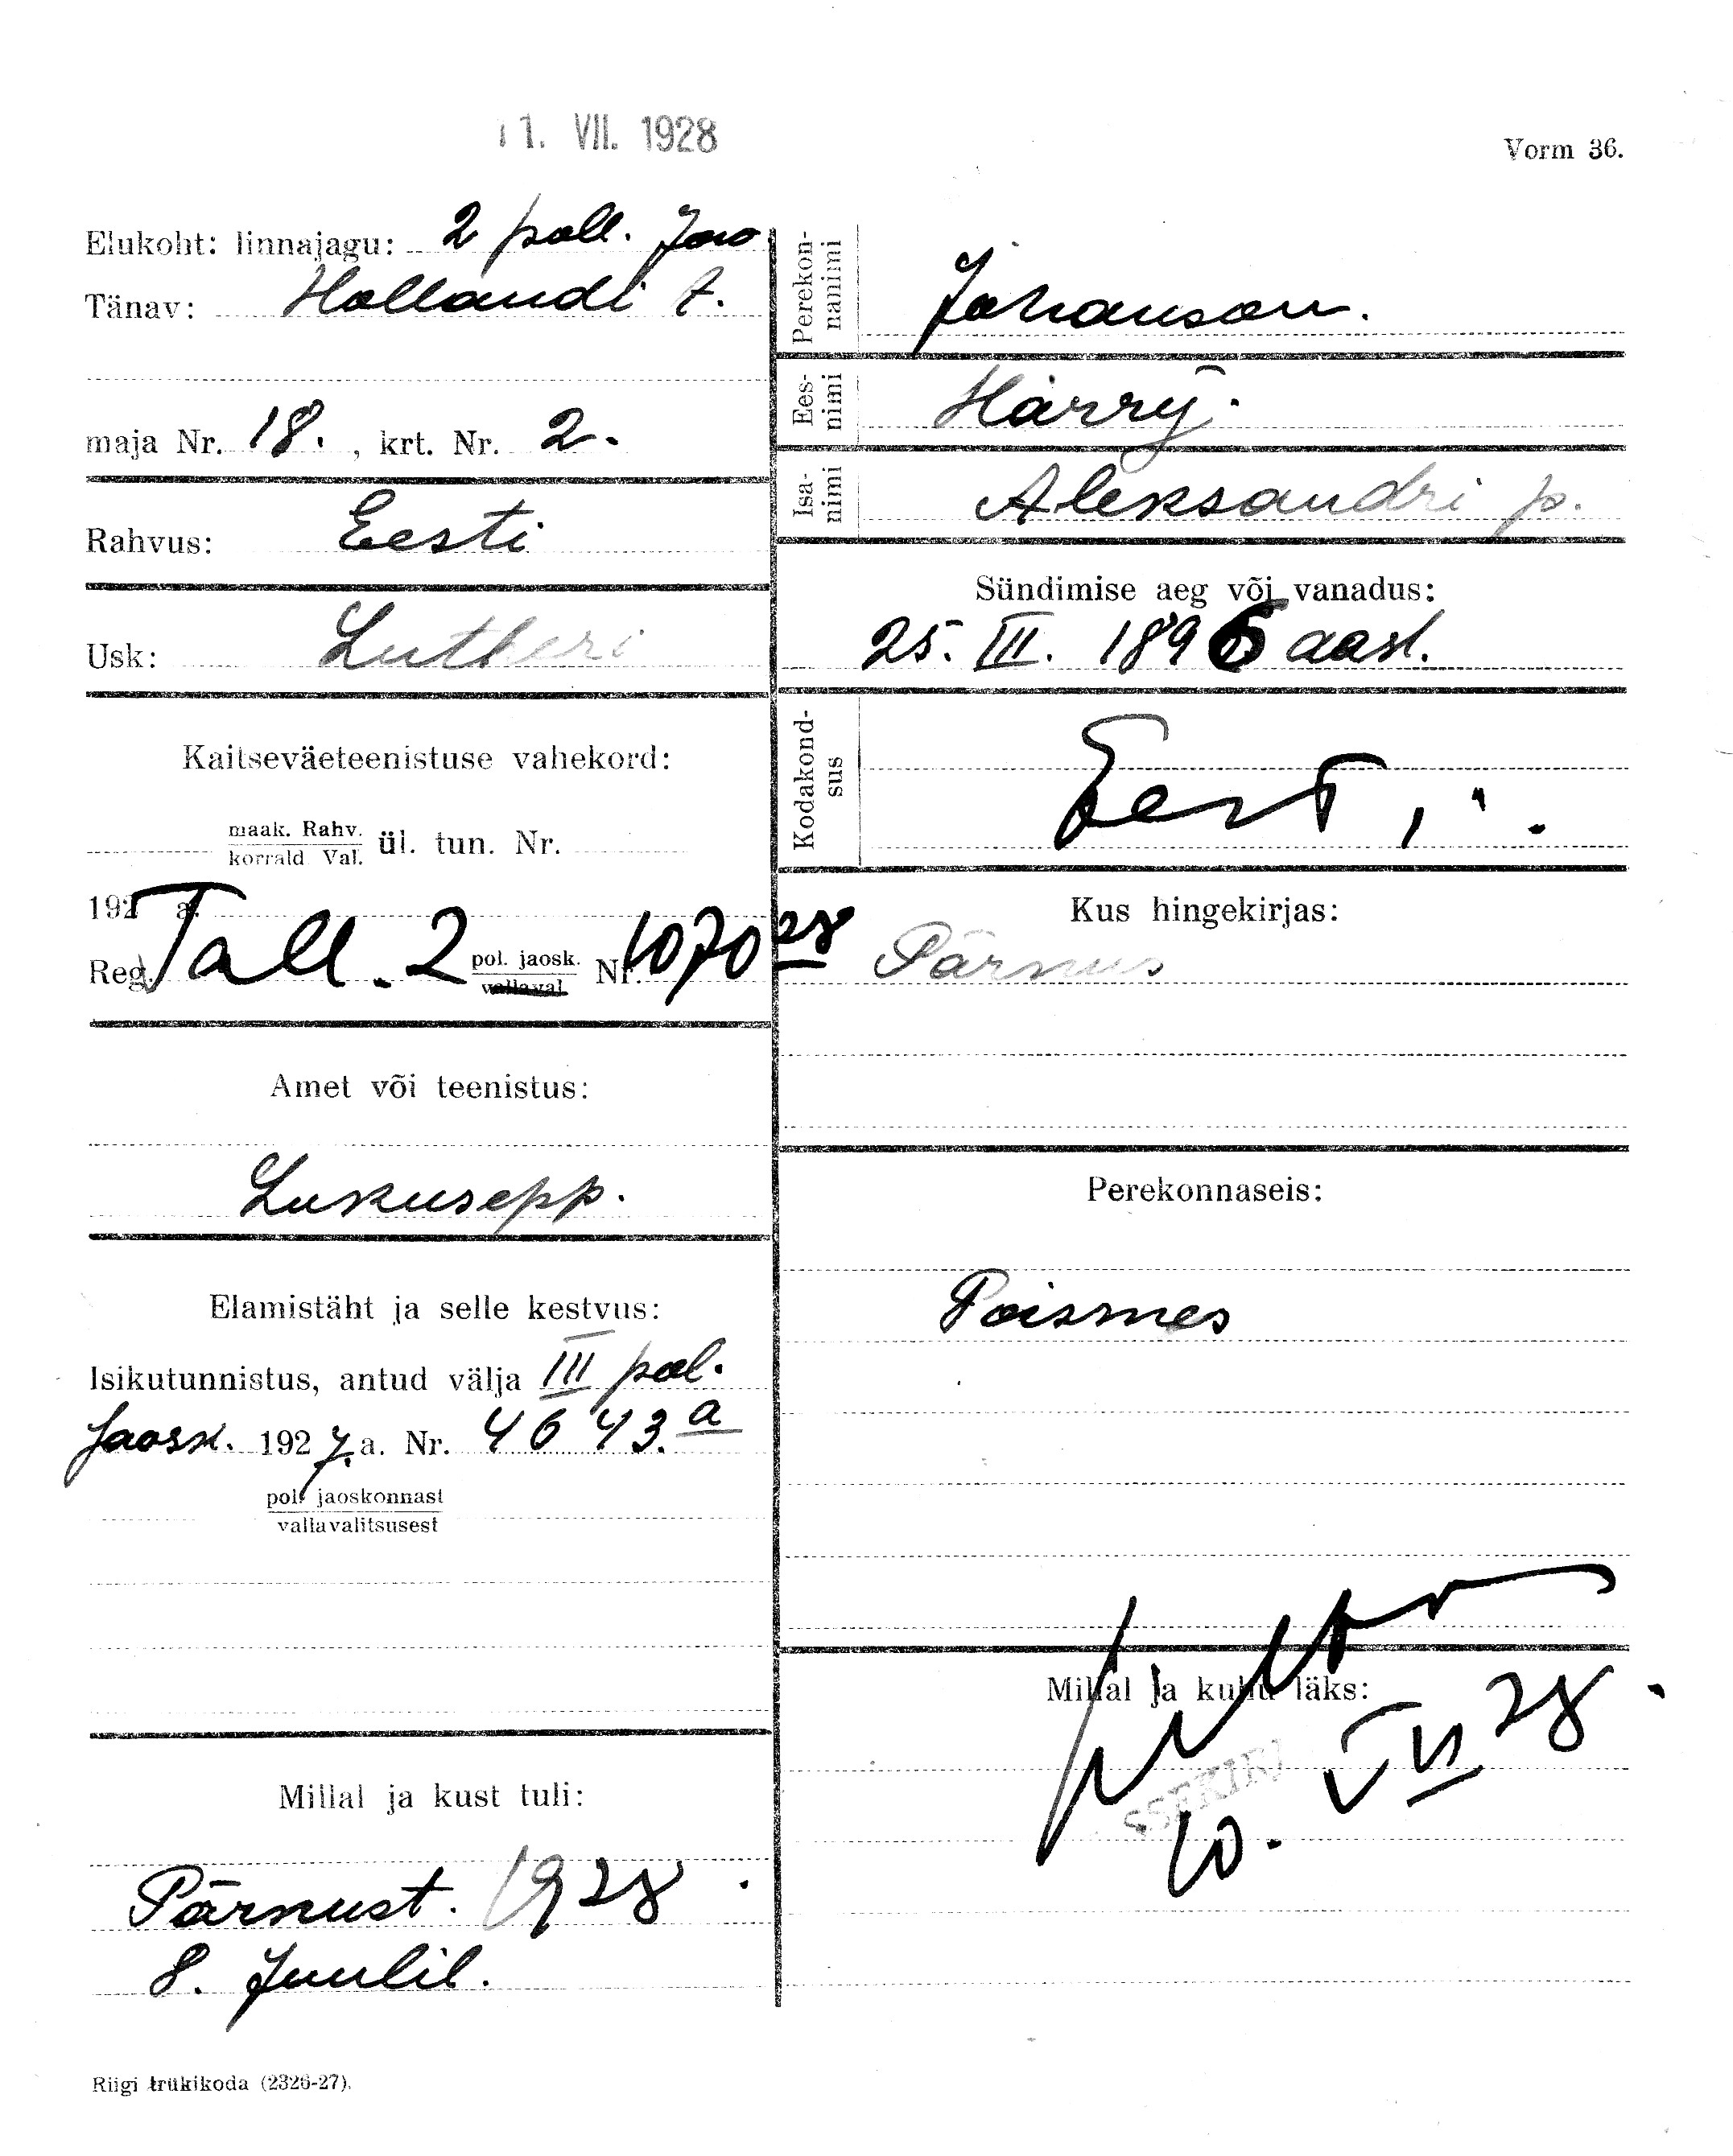 11. VII. 1928
Vorm 36.
Elukoht: linnajagu: 2 poll. Jao
Tänav: Hollandi t.
maja Nr. 18. , krt. Nr. 2.
Rahvus: Eesti
Usk: Lutheri
Kaitseväeteenistuse vahekord:
maak. Rahv.
korrald Val. ül. tun. Nr.
192 a.
Reg. Tall. 2 pol. jaosk. Nr. 1070 28
vallaval.
Amet või teenistus:
Lukusepp.
Elamistäht ja selle kestvus:
Isikutunnistus, antud välja III pol.
Jaosk. 1927. a. Nr. 4643. a
pol. jaoskonnast
vallavalitsusest
Millal ja kust tuli:
Pärnust. 1928.
8. Juulil.
Riigi trükikoda (2326-27).
Perekon-
nanimi
Johanson.
Ees-
nimi
Harry.
Isa-
nimi
Aleksandri p.
Sündimise aeg või vanadus:
25. III. 1896 aast.
Kodakond-
sus
Eesti.
Kus hingekirjas:
Pärnus
Perekonnaseis:
Poismes
Millal ja kuhu läks:
SSEKIRJ
10. VII 28.